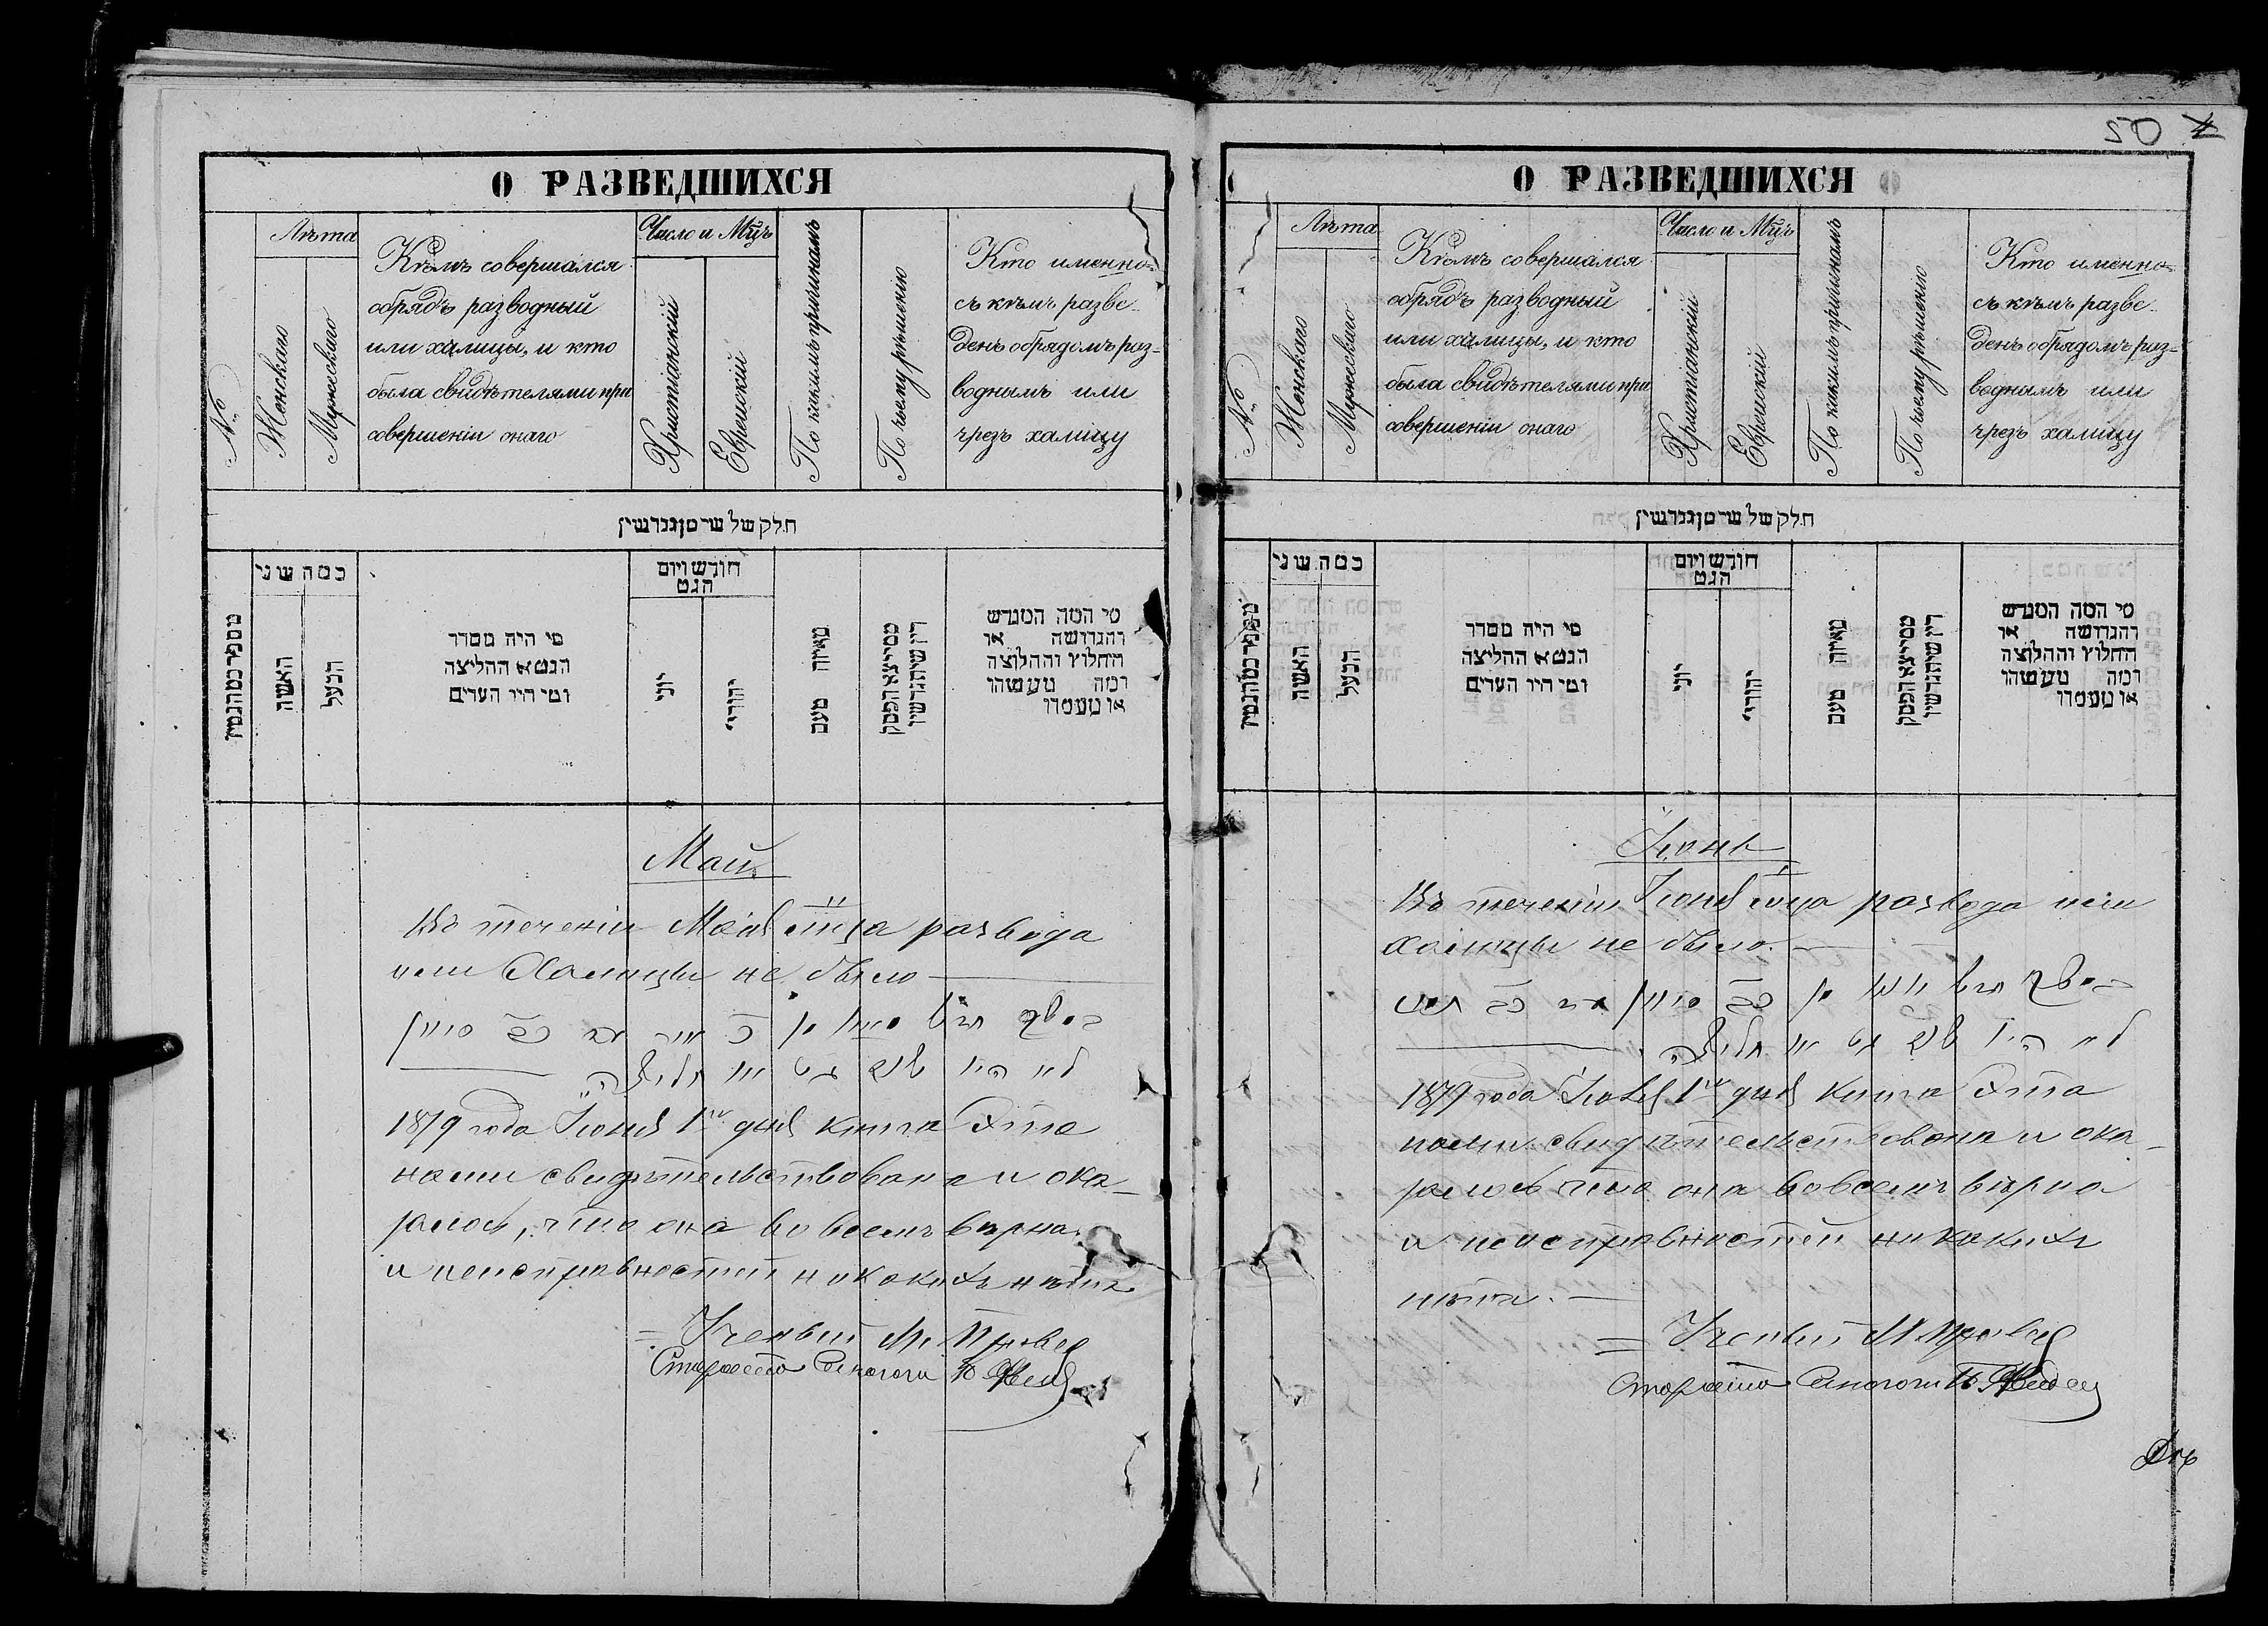 О РАЗВЕДШИХСЯ
№
Лѣта
Женскаго
Мужескаго
Кѣмъ совершался
обрядъ разводный
или халицы, и кто
была свидѣтелями при
совершеніи онаго
Число и Мцъ
Христіанскій
Еврейскій
По какимъ причинамъ
По чьему рѣшенію
Кто именно
съ кѣмъ разве-
денъ обрядомъ раз-
воднымъ или
чрезъ халицу
חלק של שי מן גגרשין
כמה שני
האשה
הבעל
מי היה מסדר
הגט או החליצה
ומי היו העדים
חודש ויום
הגט
יוני
יהודי
מאיזה טעם
מי המה המגרש
והגרושה או
החלוץ והחלוצה
ומה מעשהו
או מעמדו
Май
Въ теченіи Маія мца развода
или Халицы не было
לא היו שום גט או חליצה
1879 года Іюня 1го дня книга эта
нами свидѣтельствована и ока-
залось, что она во всемъ вѣрна
и неисправностей никакихъ нѣтъ
Ученый М.
Староста Синогоги
50
О РАЗВЕДШИХСЯ
№
Лѣта
Женскаго
Мужескаго
Кѣмъ совершался
обрядъ разводный
или халицы, и кто
была свидѣтелями при
совершеніи онаго
Число и Мцъ
Христіанскій
Еврейскій
По какимъ причинамъ
По чьему рѣшенію
Кто именно
съ кѣмъ разве-
денъ обрядомъ раз-
воднымъ или
чрезъ халицу
חלק של שי מן גגרשין
כמה שני
האשה
הבעל
מי היה מסדר
הגט או החליצה
ומי היו העדים
חודש ויום
הגט
יוני
יהודי
מאיזה טעם
מי המה המגרש
והגרושה או
החלוץ והחלוצה
ומה מעשהו
או מעמדו
Іюнь
Въ теченіи Іюня мца развода или
халицы не было.
לא היו שום גט או חליצה
1879 года 1го дня книга эта
нами свидѣтельствована и ока-
залось что она во всемъ вѣрна
и неисправностей никакихъ
нѣтъ.
Ученый М
Староста Синогоги